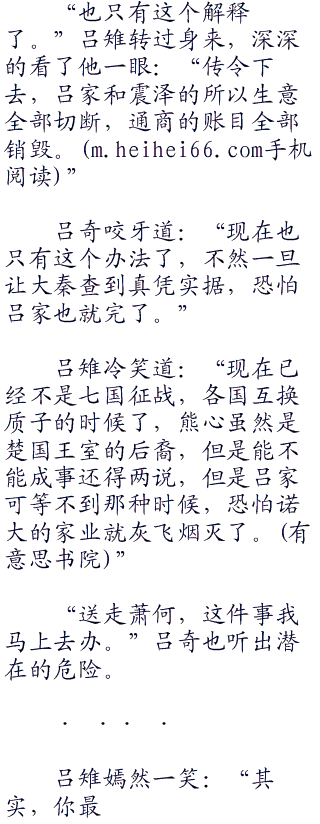 “也只有这个解释
了。”吕雉转过身来，深深
的看了他一眼：“传令下
去，吕家和震泽的所以生意
全部切断，通商的账目全部
销毁。(m.heihei66.com手机
阅读)”
吕奇咬牙道：“现在也
只有这个办法了，不然一旦
让大秦查到真凭实据，恐怕
吕家也就完了。”
吕雉冷笑道：“现在已
经不是七国征战，各国互换
质子的时候了，熊心虽然是
楚国王室的后裔，但是能不
能成事还得两说，但是吕家
可等不到那种时候，恐怕诺
大的家业就灰飞烟灭了。(有
意思书院)”
“送走萧何，这件事我
马上去办。”吕奇也听出潜
在的危险。
． ．． ．
吕雉嫣然一笑：“其
实，你最